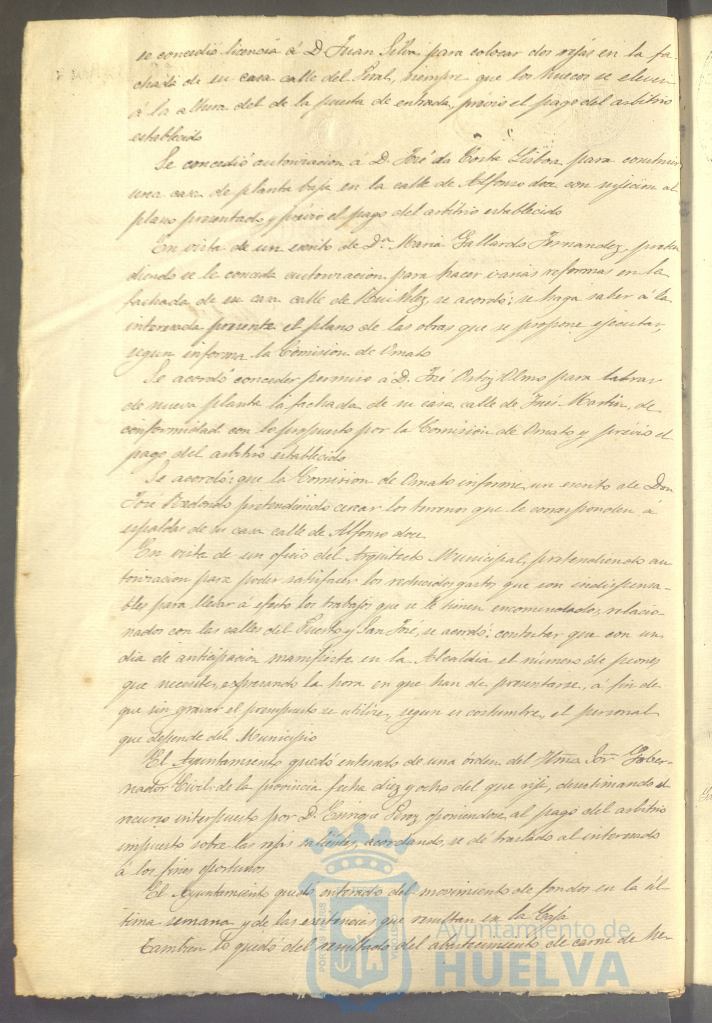 se concedió licencia á D. Juan Silva para colocar dos rejas en la fa-
chada de su casa calle del Peral, siempre que los huecos se eleven
á la altura del de la puerta de entrada, previo el pago del arbitrio
establecido
Se concedió autorizacion á D. José da Costa Lisboa para construir
una casa de planta baja en la calle de Alfonso doce con sujecion al
plano presentado y previo el pago del arbitrio establecido
En vista de un escrito de D.ª Maria Gallardo Fernandez, preten
diendo se le conceda autorizacion para hacer varias reformas en la
fachada de su casa calle de Rui Velez, se acordó: se haga saber á la
interesada presente el plano de las obras que se propone ejecutar,
segun informa la Comision de Ornato
Se acordó conceder permiso á D. José Ortiz Olmo para labrar
de nueva planta la fachada de su casa calle de José Martin, de
conformidad con lo propuesto por la Comision de Ornato y previo el
pago del arbitrio establecido
Se acordó: que la Comision de Ornato informe, un escrito de Don
José Redondo pretendiendo cercar los terrenos que le corresponden á
espaldas de su casa calle de Alfonso doce
En vista de un oficio del Arquitecto Municipal, pretendiendo au
torizacion para poder satisfacer los reducidos gastos que son indispensa-
bles para llevar á efecto los trabajos que se le tienen encomendados, relacio-
nados con las calles del Puerto y San José, se acordó: contestar que con un
dia de anticipacion manifieste en la Alcaldia el número de peones
que necesite, expresando la hora en que han de presentarse, á fin de
que sin gravar el presupuesto se utilize, segun es costumbre, el personal
que depende del Municipio
El Ayuntamiento quedó enterado de una órden del Iltmo Sor Gober-
nador Civil de la provincia fecha diez y ocho del que rije, desestimando el
recurso interpuesto por D. Enrique Perez oponiendose, al pago del arbitrio
impuesto sobre las rejas salientes, acordando, se dé traslado al interesado
á los fines oportunos
El Ayuntamiento quedó enterado del movimiento de fondos en la úl-
tima semana y de las existencias que resultan en la Caja
Tambien lo quedó del resultado del abastecimiento de carne de He-
Ayuntamiento de
HUELVA